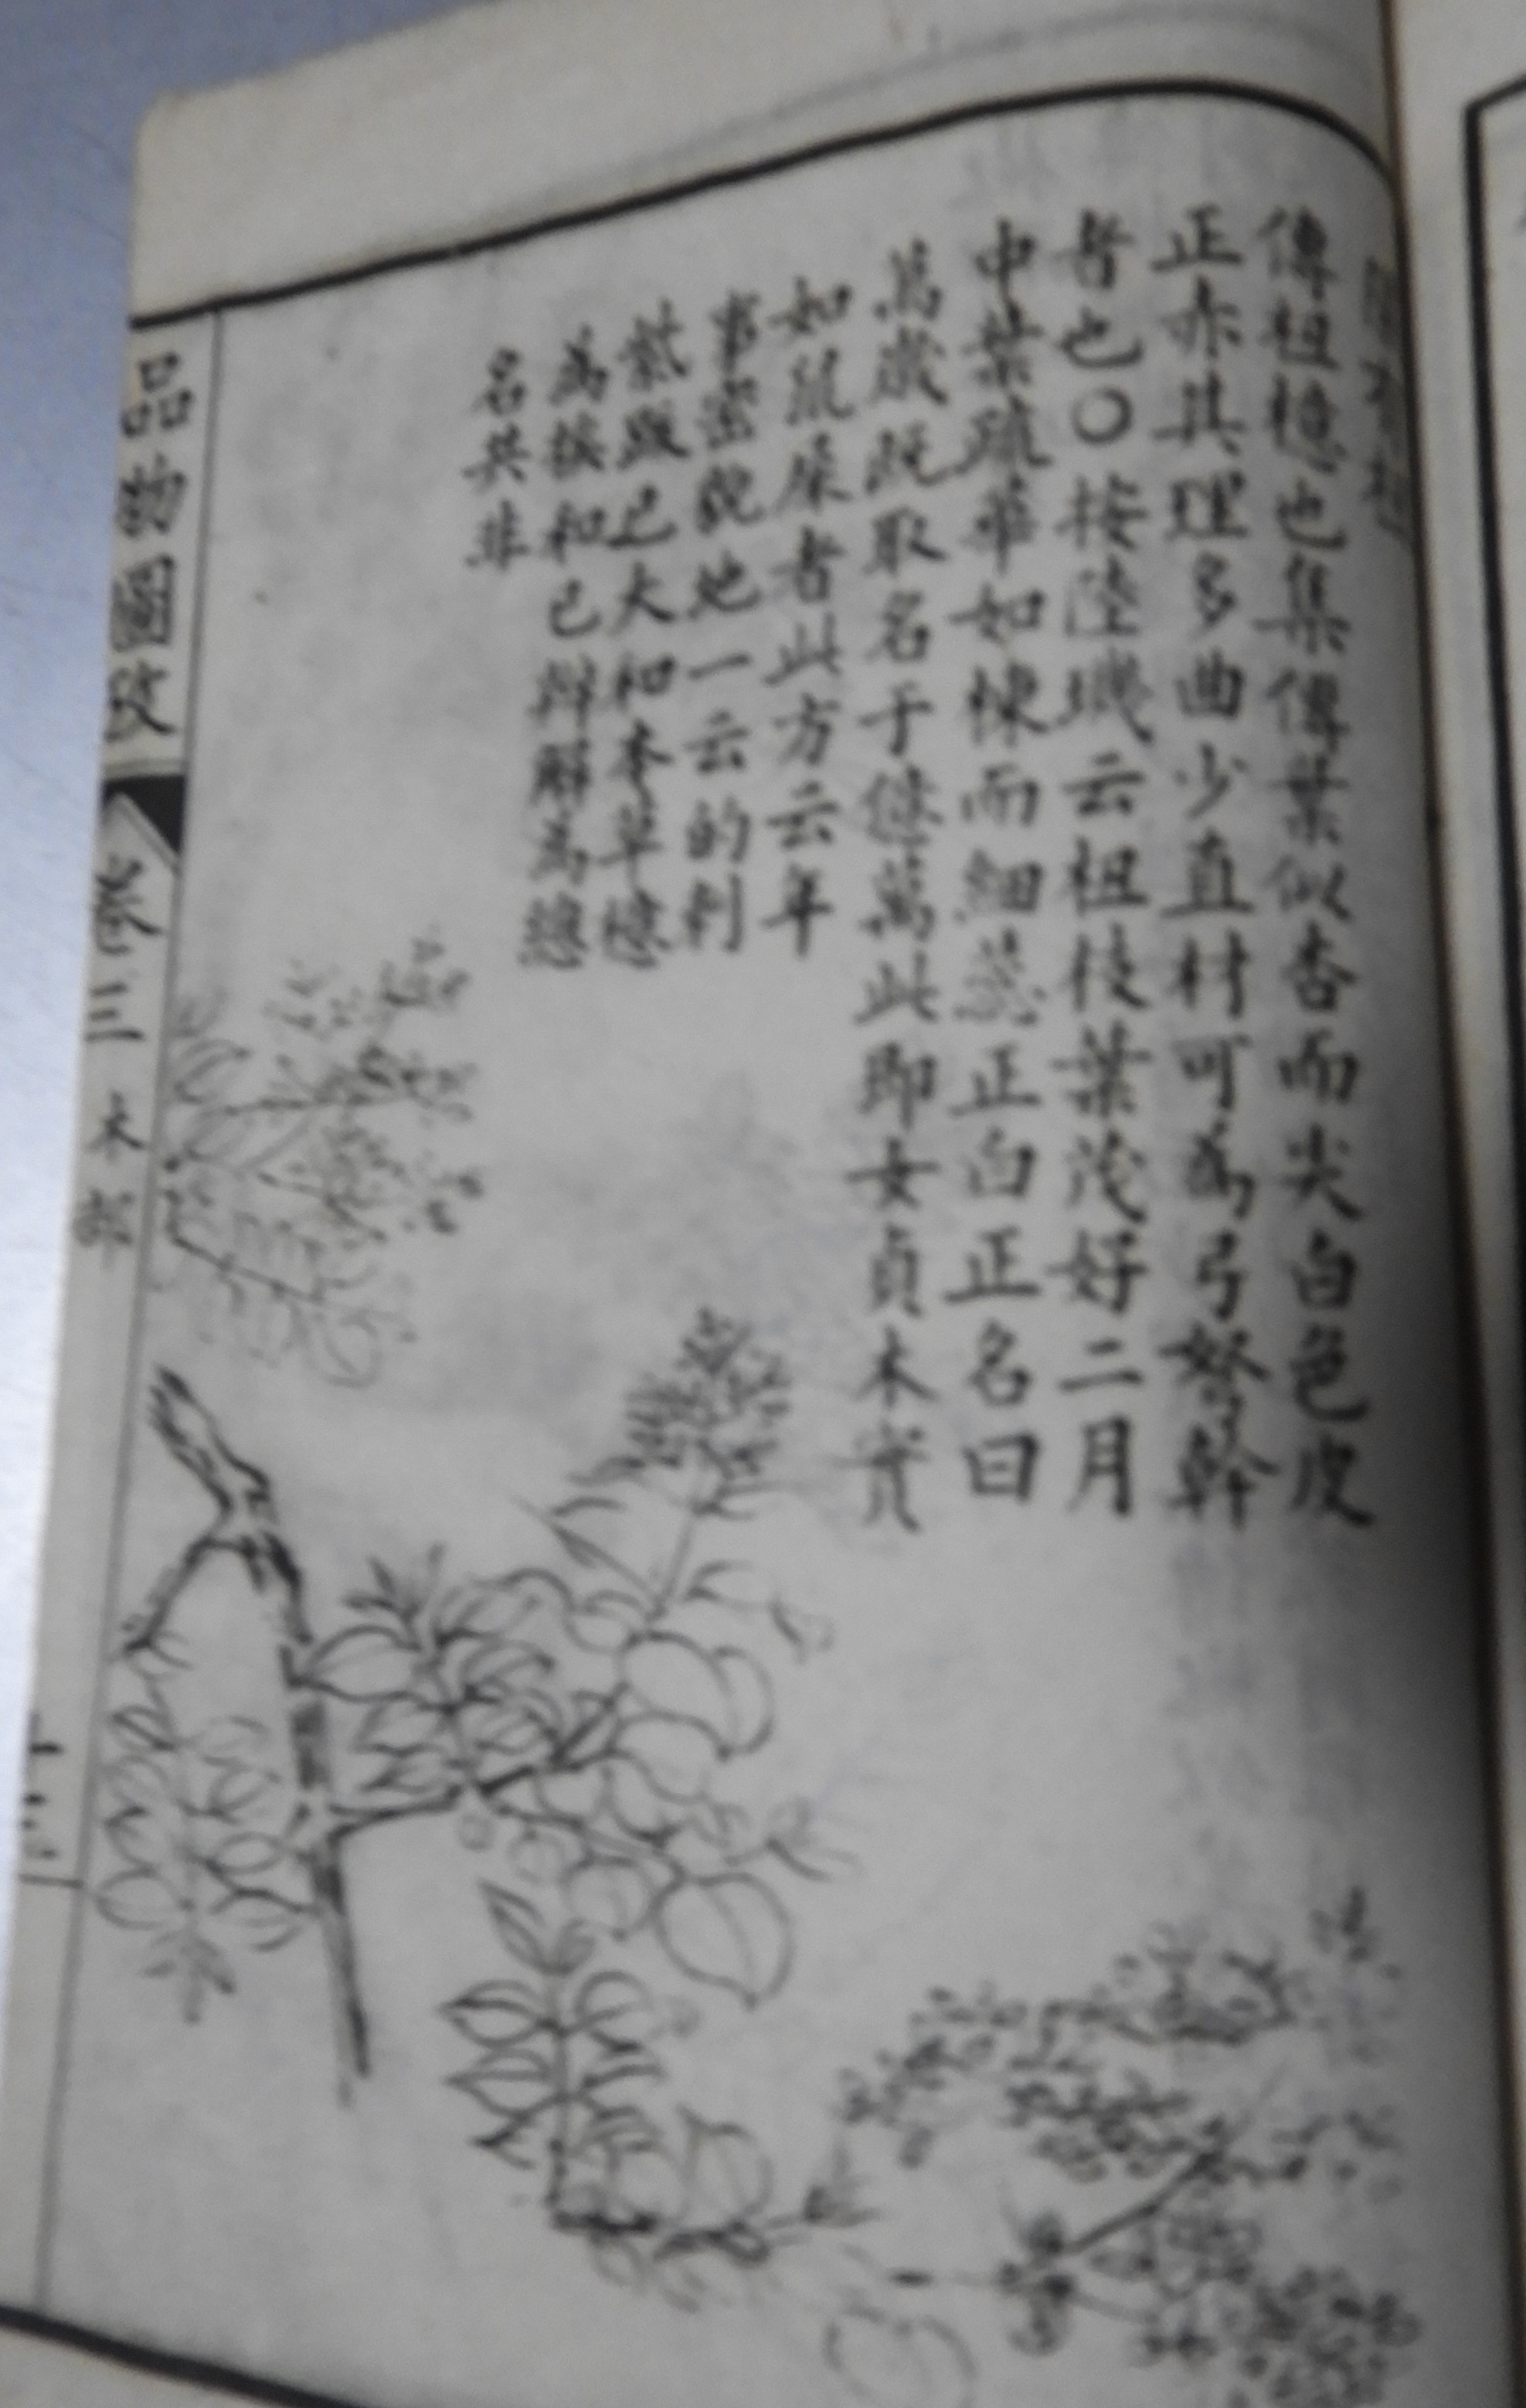 隰有杻
傳杻檍也集傳葉似杏而尖白色皮
正赤其理多曲少直材可為弓弩幹
者也○按陸璣云杻枝葉茂好二月
中葉疏華如楝而細蕊正白正名曰
萬歲既取名于億萬此即女貞木實
如鼠屎者此方云年
事蜜貌地一云的利
紫蹶已大和本草檍
為 和已辯解為
名共非
品物圖攷
卷三 木部
十三